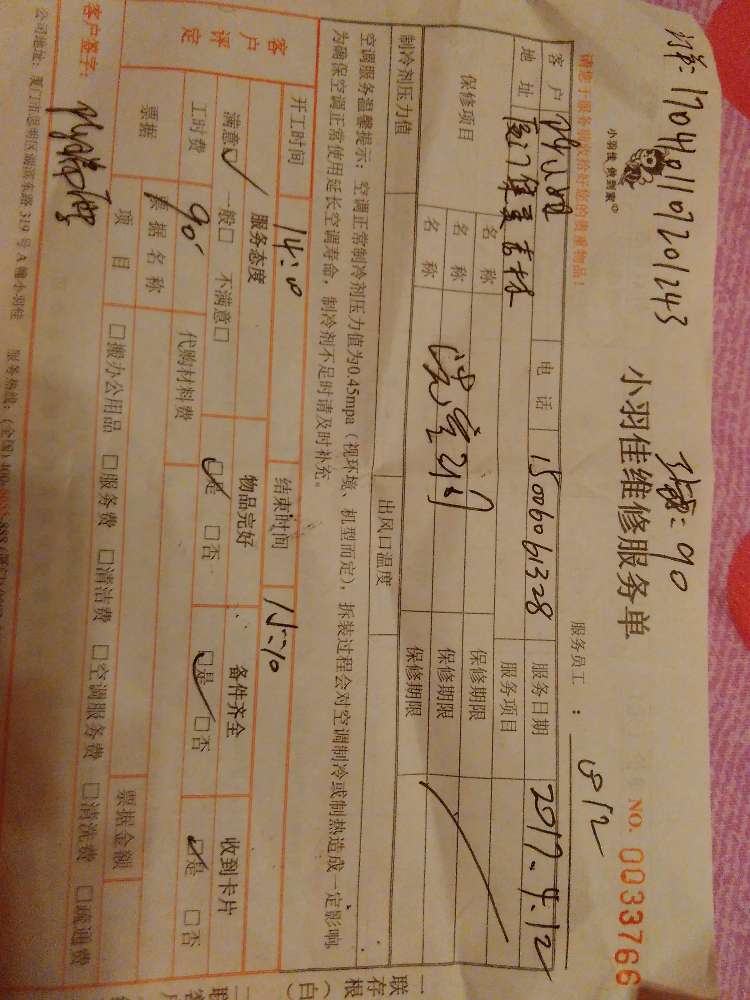 订单: 170401107201243
小羽佳 快到家
小羽佳维修服务单
NO. 0033766
请您于服务前收拾好您的贵重物品！
服务员工： 812
客户
电话 15006061328
服务日期 2017.4.12
地址
服务项目
保修项目
名称 保修期限
名称 保修期限
名称 保修期限
制冷剂压力值
出风口温度
空调服务温馨提示：空调正常制冷剂压力值为0.45mpa（视环境、机型而定），拆装过程会对空调制冷或制热造成一定影响。
为确保空调正常使用延长空调寿命，制冷剂不足时请及时补充。
开工时间 14:10 结束时间 15:10
客户评定
服务态度 物品完好 备件齐全 收到卡片
满意☑ 一般□ 不满意□ ☑是 □否 ☑是 □否 ☑是 □否
工时费 90 代购材料费
票据 票据名称 票据金额
项目 □搬办公用品 □服务费 □清洁费 □空调服务费 □清洗费 □疏通费
客户签字：
公司地址：厦门市思明区湖滨东路 319 号 A 幢小羽佳 服务热线：(全国)
一联存根（白）
二联